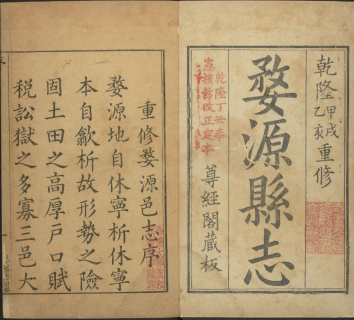 乾隆甲戌
乙亥重修
婺源縣志
尊經閣藏板
乾隆丁丑奉
憲核飭改正定本
重修婺源邑志序
婺源地自休寧析休寧
本自歙析故形勢之險
固土田之高厚戶口賦
稅訟獄之多寡三邑大